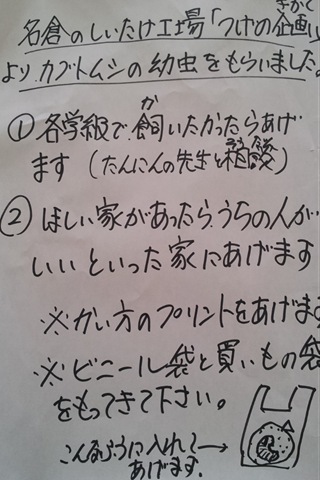 名倉のしいたけ工場「つげの企画」
きかく
よりカブトムシの幼虫をもらいました。
① 各学級で飼いたかったらあげ
か
ます(たんにんの先生と相談)
② ほしい家があったら、うちの人が
いいといった家にあげます
※かい方のプリントをあげます
※ビニール袋と買いもの袋
をもってきて下さい。
こんなふうに入れて→
あげます.